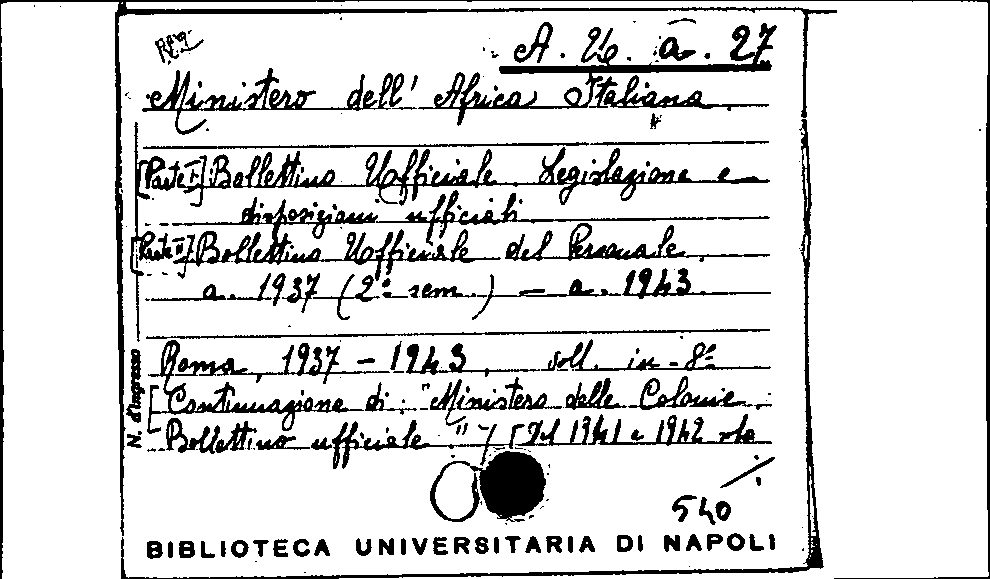 A. Ue. a. 27
Ministero dell' Africa Italiana.
[Parte I] Bollettino Ufficiale. Legislazione e
disposizioni ufficiali.
[Parte II] Bollettino Ufficiale del Personale.
a. 1937 (2° sem.) — a. 1943.
Roma, 1937 - 1943, voll. in-8°
[Continuazione di: "Ministero delle Colonie.
Bollettino ufficiale"] [Del 1941 e 1942
540
N. d'ingresso
BIBLIOTECA UNIVERSITARIA DI NAPOLI